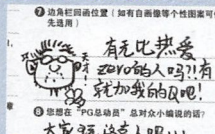 ❼边角栏回函位置（如有自画像等个性图案可
先选用）
有无比热爱
zero的人吗?!有
就加我的Q吧!
❽您想在“PG总动员”总对众小编说的话?
大家